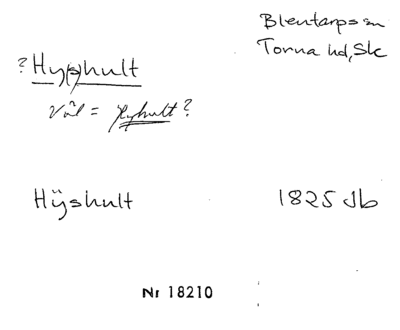 Blentarps sn
Torna hd, Sk
? Hy(s)hult
Väl = Hyhult?
Hÿshult 1825 Jb
Nr 18210